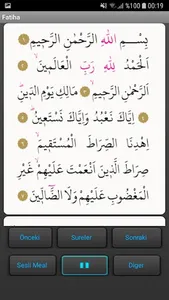 00:19
Fatiha
بِسْمِ اللّٰهِ الرَّحْمٰنِ الرَّحِيمِ ١
اَلْحَمْدُ لِلّٰهِ رَبِّ الْعَالَمِينَ ٢
اَلرَّحْمٰنِ الرَّحِيمِ ٣ مَالِكِ يَوْمِ الدِّينِ ٤
اِيَّاكَ نَعْبُدُ وَاِيَّاكَ نَسْتَعِينُ ٥
اِهْدِنَا الصِّرَاطَ الْمُسْتَقِيمَ ٦
صِرَاطَ الَّذِينَ اَنْعَمْتَ عَلَيْهِمْ غَيْرِ
الْمَغْضُوبِ عَلَيْهِمْ وَلَا الضَّالِّينَ ٧
Önceki Sureler Sonraki
Sesli Meal Diger